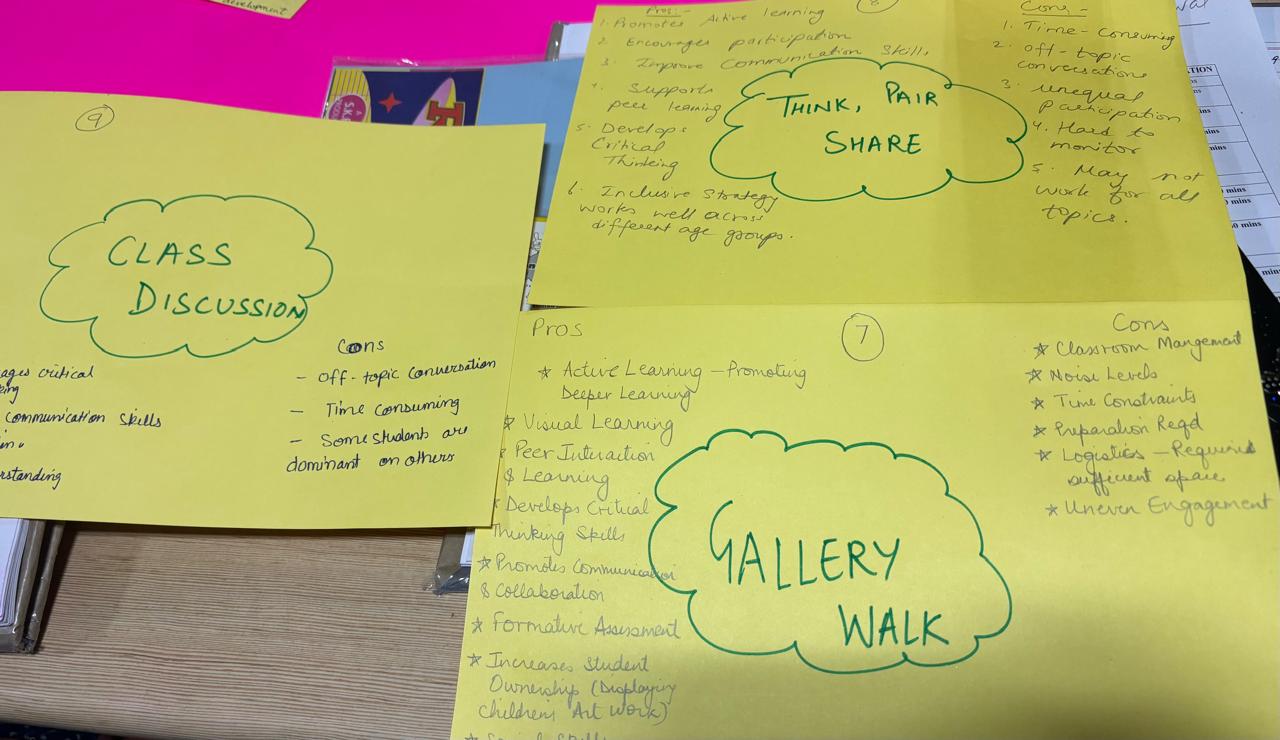 development
9
CLASS
DISCUSSION
ages critical
king
communication skills
erstanding
Cons
- Off-topic conversation
- Time consuming
- Some students are
dominant on others
8
Pros:-
1. Promotes Active learning
2. Encourages participation
3. Improve Communication Skills
4. Supports
peer learning
5. Develops
Critical
Thinking
6. Inclusive Strategy
works well across
different age groups.
THINK, PAIR
SHARE
Cons -
1. Time-Consuming
2. off-topic
conversations
3. unequal
participation
4. Hard to
monitor
5. May not
work for all
topics.
7
Pros
* Active Learning - Promoting
Deeper Learning
* Visual Learning
* Peer Interaction
& Learning
* Develops Critical
Thinking Skills
* Promotes Communication
& Collaboration
* Formative Assessment
* Increases Student
Ownership (Displaying
childrens Art work)
GALLERY
WALK
Cons
* Classroom Mangement
* Noise Levels
* Time Constraints
* Preparation Reqd
* Logistics - Requires
sufficient space
* Uneven Engagement
TION
mins